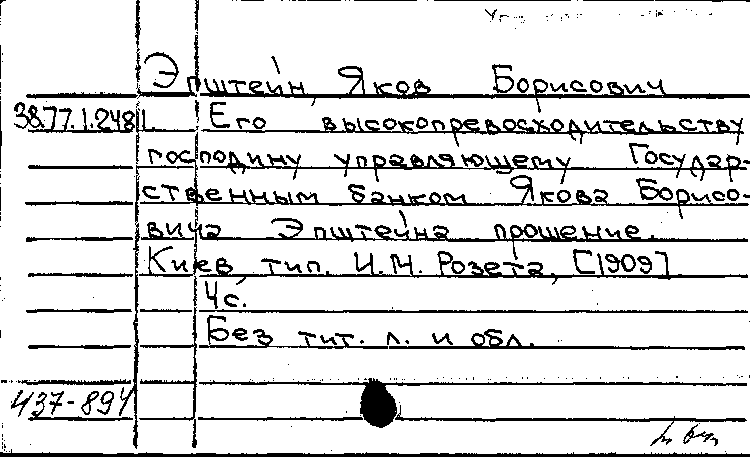 Эпштейн, Яков Борисович
38.77.1.248 Его высокопревосходительству
господину управляющему Государ-
ственным банком Якова Борисо-
вича Эпштейна прошение.
Киев, тип. И.М. Розета, [1909]
4с.
Без тит. л. и обл.
437-894